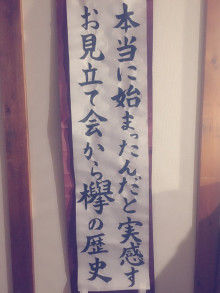 本当に始まったんだと実感す
お見立て会から欅の歴史